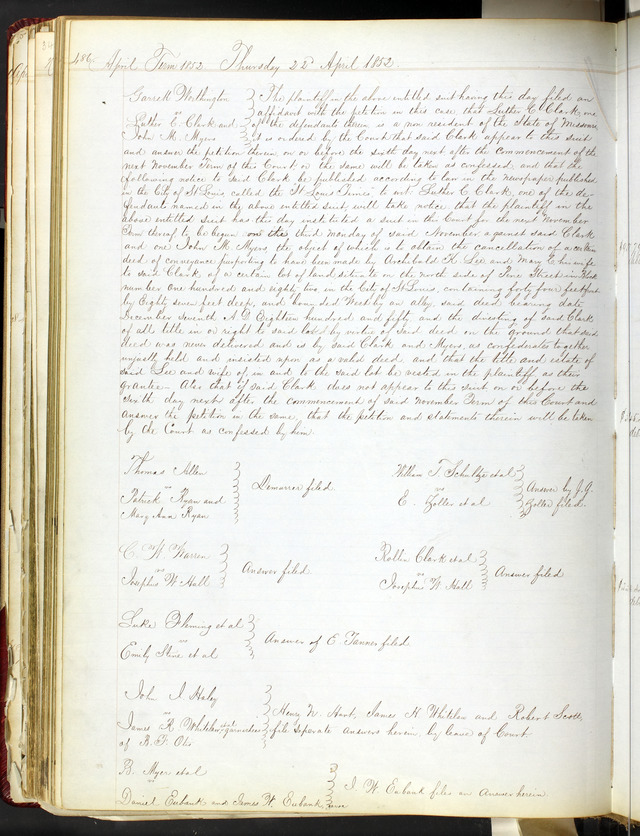 486
April Term 1852 Thursday 22d April 1852
Garrett Worthington } The plaintiff in the above entitled suit having this day filed an
vs affidavit with the petition in this case, that Luther C. Clark, one
Luther C. Clark and of the defendants therein is a non resident of the State of Missouri,
John M. Myers } it is ordered by the Court that said Clark appear to this suit
and answer the petition therein on or before the sixth day next after the commencement of the
next November Term of this Court or the same will be taken as confessed, and that the
following notice to said Clark be published according to law in the newspaper published
in the City of St Louis called the "St Louis Times" to wit, Luther C. Clark, one of the de-
fendants named in the above entitled suit, will take notice that the plaintiff in the
above entitled suit has this day instituted a suit in this Court for the next November
Term thereof to be begun on the third monday of said November against said Clark
and one John M. Myers the object of which is to obtain the cancellation of a certain
deed of conveyance purporting to have been made by Archibald K. Lee and Mary E. his wife
to said Clark, of a certain lot of land situate on the north side of Pine Street in Block
number one hundred and eighty two in the City of St Louis, containing forty four feet front
by Eighty seven feet deep, and bounded West by an alley said deed bearing date
December seventh A.D. Eighteen hundred and fifty and the divesting of said Clark
of all title in or right to said lot by virtue of said deed on the ground that said
deed was never delivered and is by said Clark and Myers, as confederates together
unjustly held and insisted upon as a valid deed and that the title and estate of
said Lee and wife of, in and to the said lot be vested in the plaintiff as their
grantee. Also that if said Clark does not appear to this suit on or before the
sixth day next after the commencement of said November Term of this Court and
answer the petition in the same, that the petition and statements therein will be taken
by the Court as confessed by him.
Thomas Allen
vs } Demurrer filed.
Patrick Ryan and
Mary Ann Ryan
William T. Schultze et al
vs } Answer by J. G.
E. Zoller et al Zoller filed.
C. W. Warren
vs } Answer filed
Josephus W. Hall
Rollin Clark et al
vs } Answer filed
Josephus W. Hall
Luke Fleming et al
vs } Answer of E. Tanner filed.
Emily Stine et al
John I Haley
vs } Henry N. Hart, James H. Whitelaw and Robert Scott,
James R. Whitelaw et al garnishees file separate answers herein, by leave of Court
of B. F. Otis
B. Myer et al
vs } J. W. Eubank files an Answer herein.
Daniel Eubank and James W. Eubank